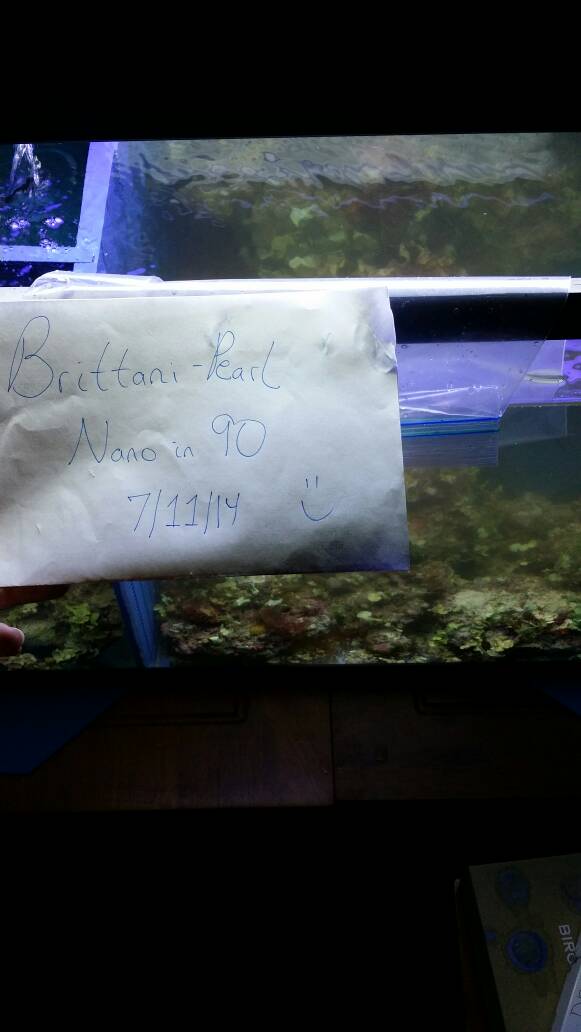 Brittani-Pearl
Nano in 90
7/11/14